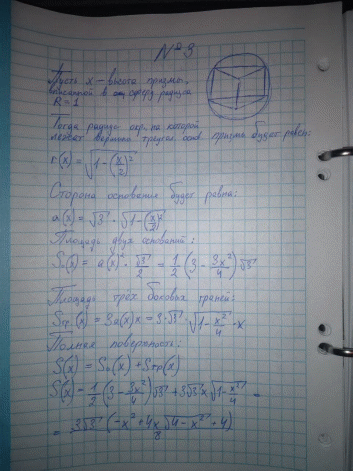 №3
Пусть x – высота призмы,
вписанной в сферу радиуса
R = 1
Тогда радиус окр. по которой
лежат вершины треугол. осн. призмы будет равен:
r(x) = √(1-(x/2)²)
Сторона основания будет равна:
a(x) = √3 · √(1-(x/2)²)
Площадь двух оснований:
Sо(x) = a(x)² · √3/2 = 1/2 (3 - 3x²/4) √3
Площадь трёх боковых граней:
Sгр.(x) = 3a(x)x = 3·√3·√(1-x²/4) · x
Полная поверхность:
S(x) = Sо(x) + Sгр(x)
S(x) = 1/2 (3 - 3x²/4) √3 + 3√3 x √(1-x²/4) =
= 3√3 (-x² + 4x √(4-x²) + 4) / 8